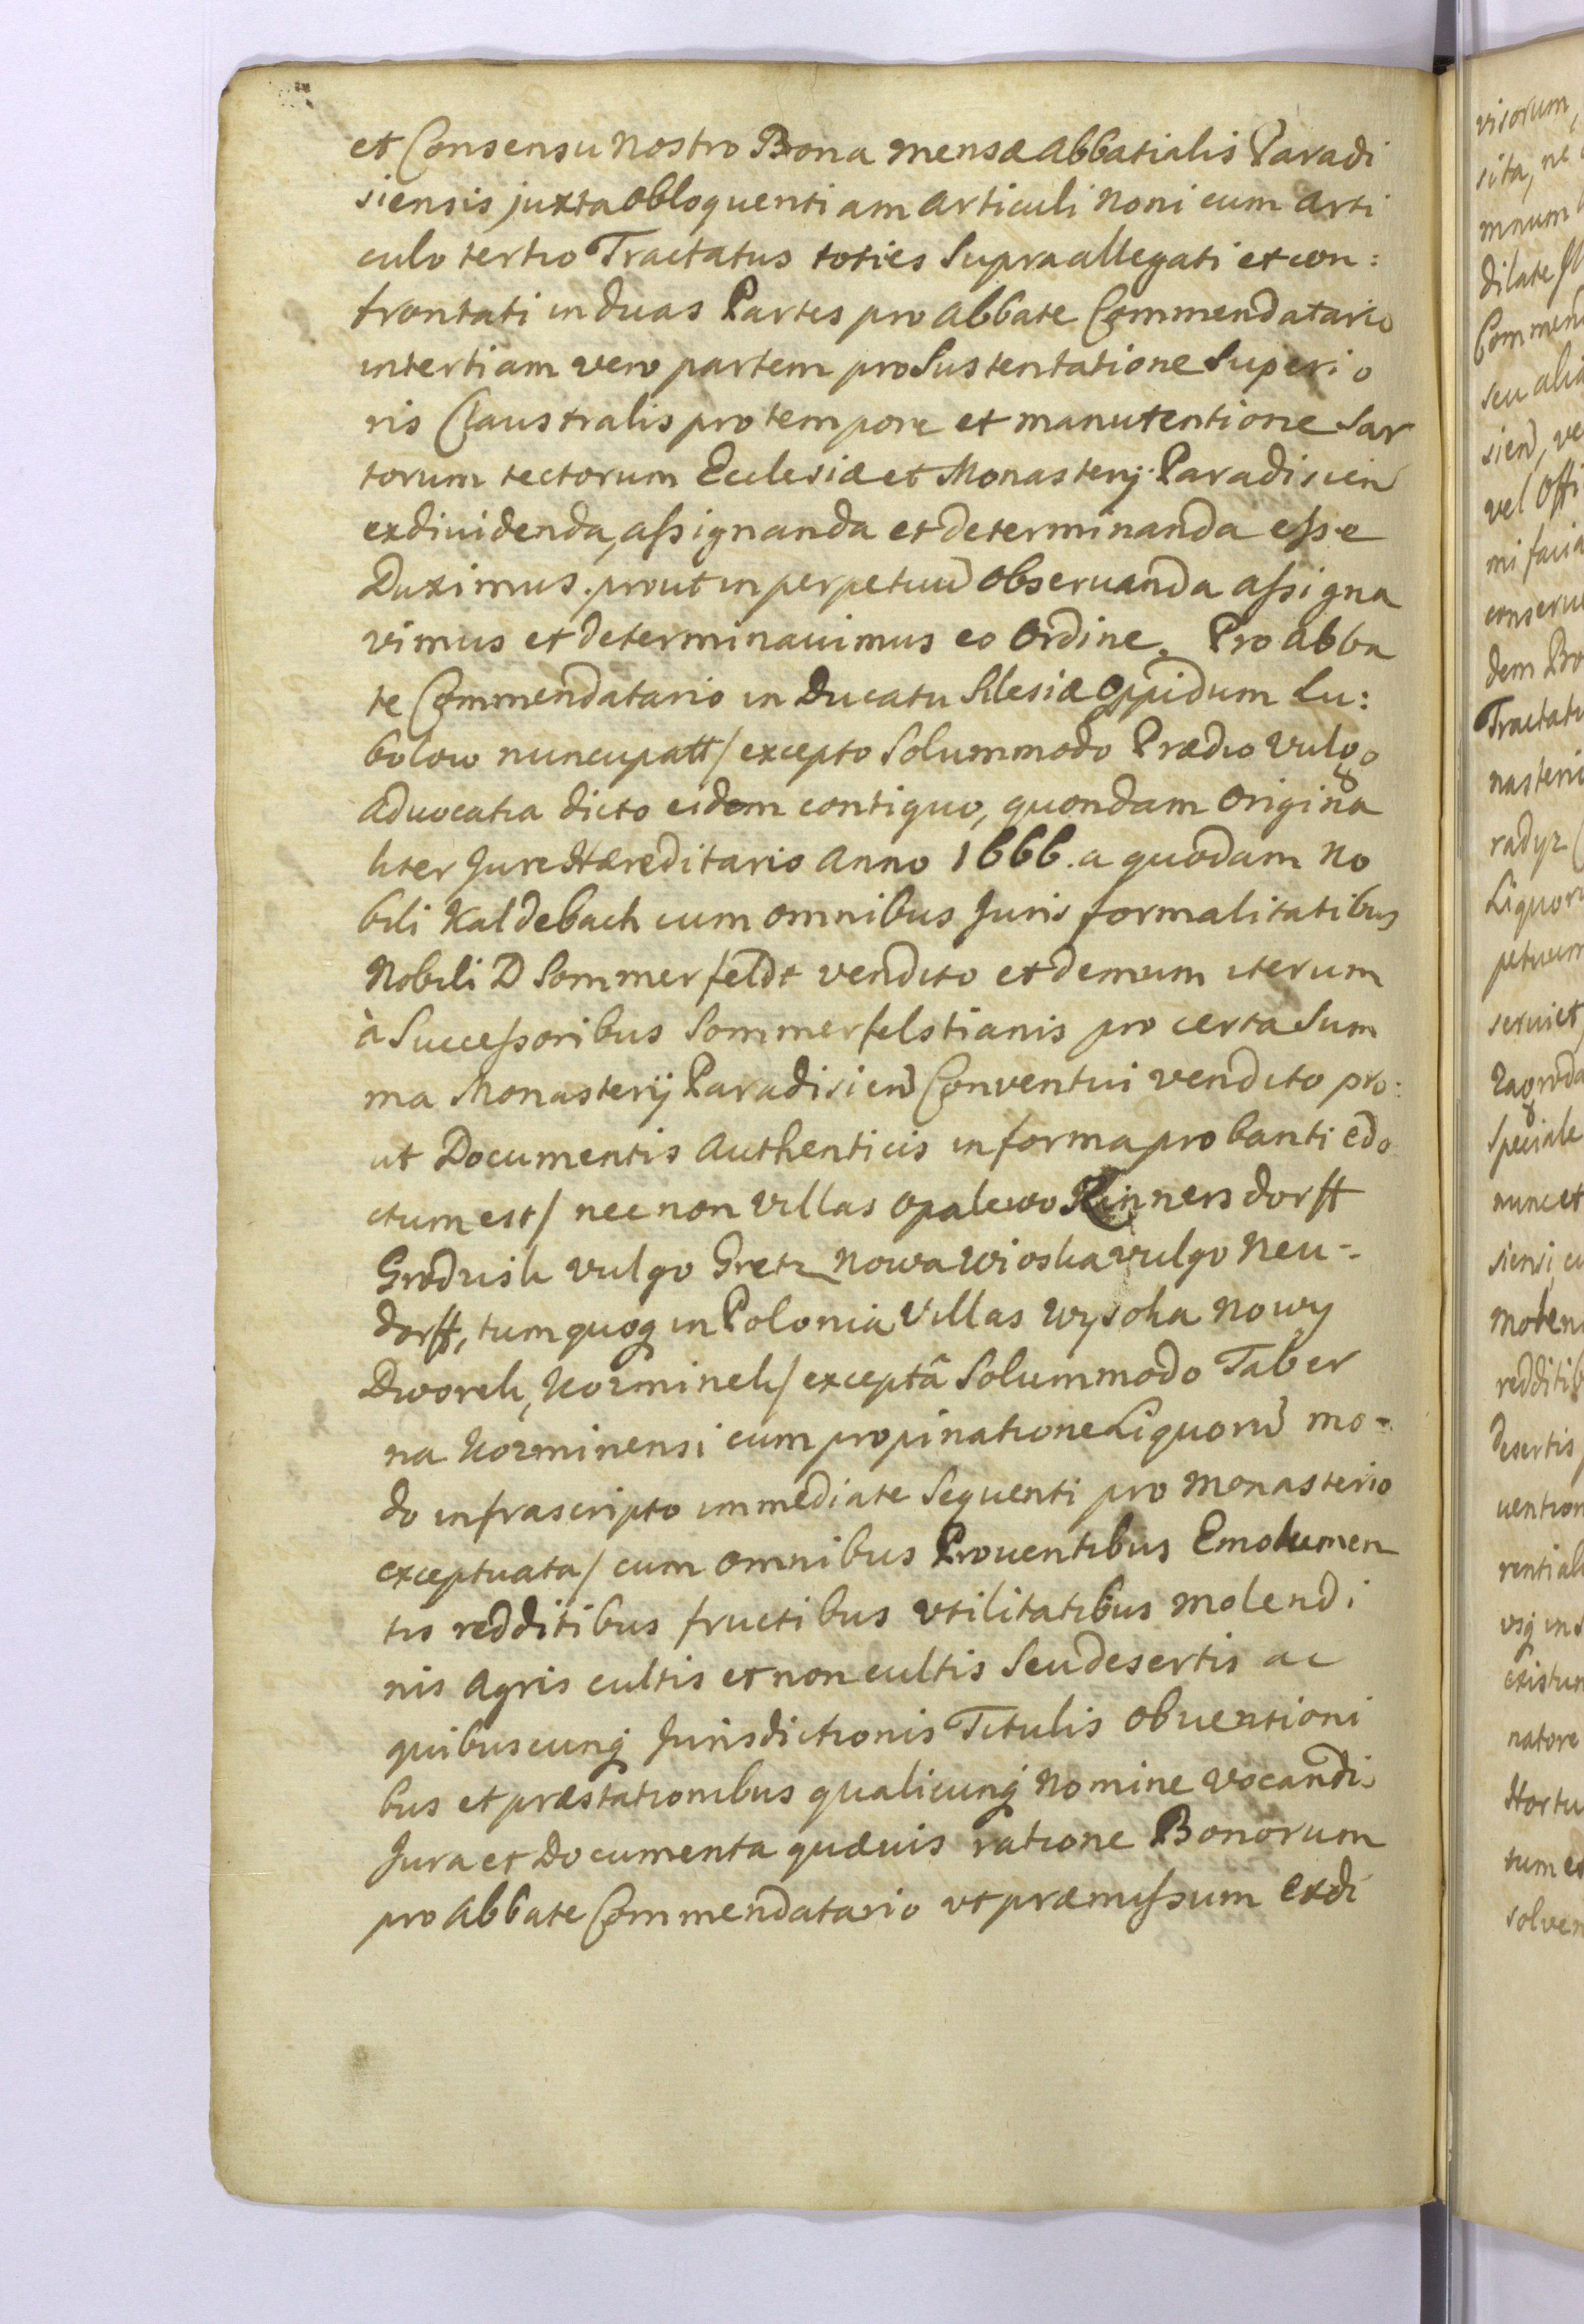 et Consensu Nostro Bona mensæ Abbatialis Paradi
siensis juxta obloquentiam Articuli Noni cum Arti
culo tertio Tractatus toties supraallegati et con:
frontati in duas Partes pro Abbate Commendatario
in tertiam vero partem pro Sustentatione Superio
ris Claustralis pro tempore et manutentione Sar
torum tectorum Ecclesiæ et Monasterij Paradisien̄
exdividenda, aſsignanda et determinanda eſse
Duximus. prout in perpetuū observanda aſsigna
vimus et determinavimus eo Ordine. Pro Abba
te Commendatario in Ducatu Silesiæ Oppidum Lu:
bolow nuncupatt / excepto Solummodo Prædio vulgo
advocatia dicto eidem contiguo, quondam Origina
liter Jure Hæreditario Anno 1666. a quodam No
bili Kaldebach cum omnibus Juris formalitatibus
Nobili D Sommerfeldt vendito et demum iterum
à Succeſsoribus Sommerfelstianis pro certa Sum
ma Monasterij Paradisien̄ Conventui vendito pro:
ut Documentis Authenticis in forma probanti edo
ctum est / nec non Villas Opalewo Rinnersdorff
Grodzisk vulgo Gretz Nowa Wioska vulgo Neu-
dorff, tum quoq in Polonia Villas Wysoka Nowy
Dworek, Kozminek / exceptâ Solummodo Taber
na Kozminensi cum propinatione Liquorū mo-
do infrascripto immediate Sequenti pro Monasterio
exceptuata / cum omnibus Proventibus Emolumen
tis redditibus fructibus vtilitatibus Molendi
nis Agris cultis et non cultis Seu desertis ac
quibuscunq Jurisdictionis Titulis Obventioni
bus et præstationibus qualicunq Nomine vocandis
Jura et Documenta quævis ratione Bonorum
pro Abbate Commendatario vt præmiſsum exdi